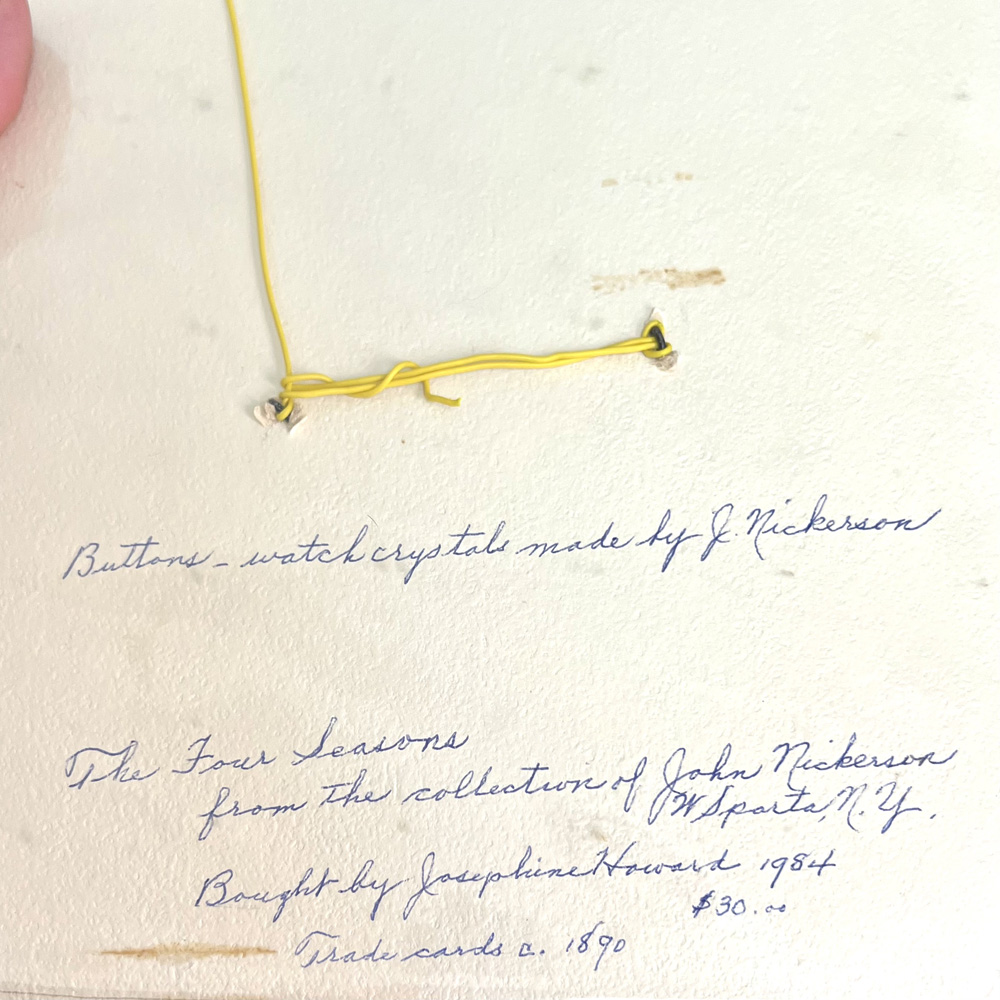 Buttons - watch crystals made by J. Nickerson
The Four Seasons
from the collection of John Nickerson
W Sparta, N.Y.
Bought by Josephine Howard 1984
$30.00
Trade cards c. 1890